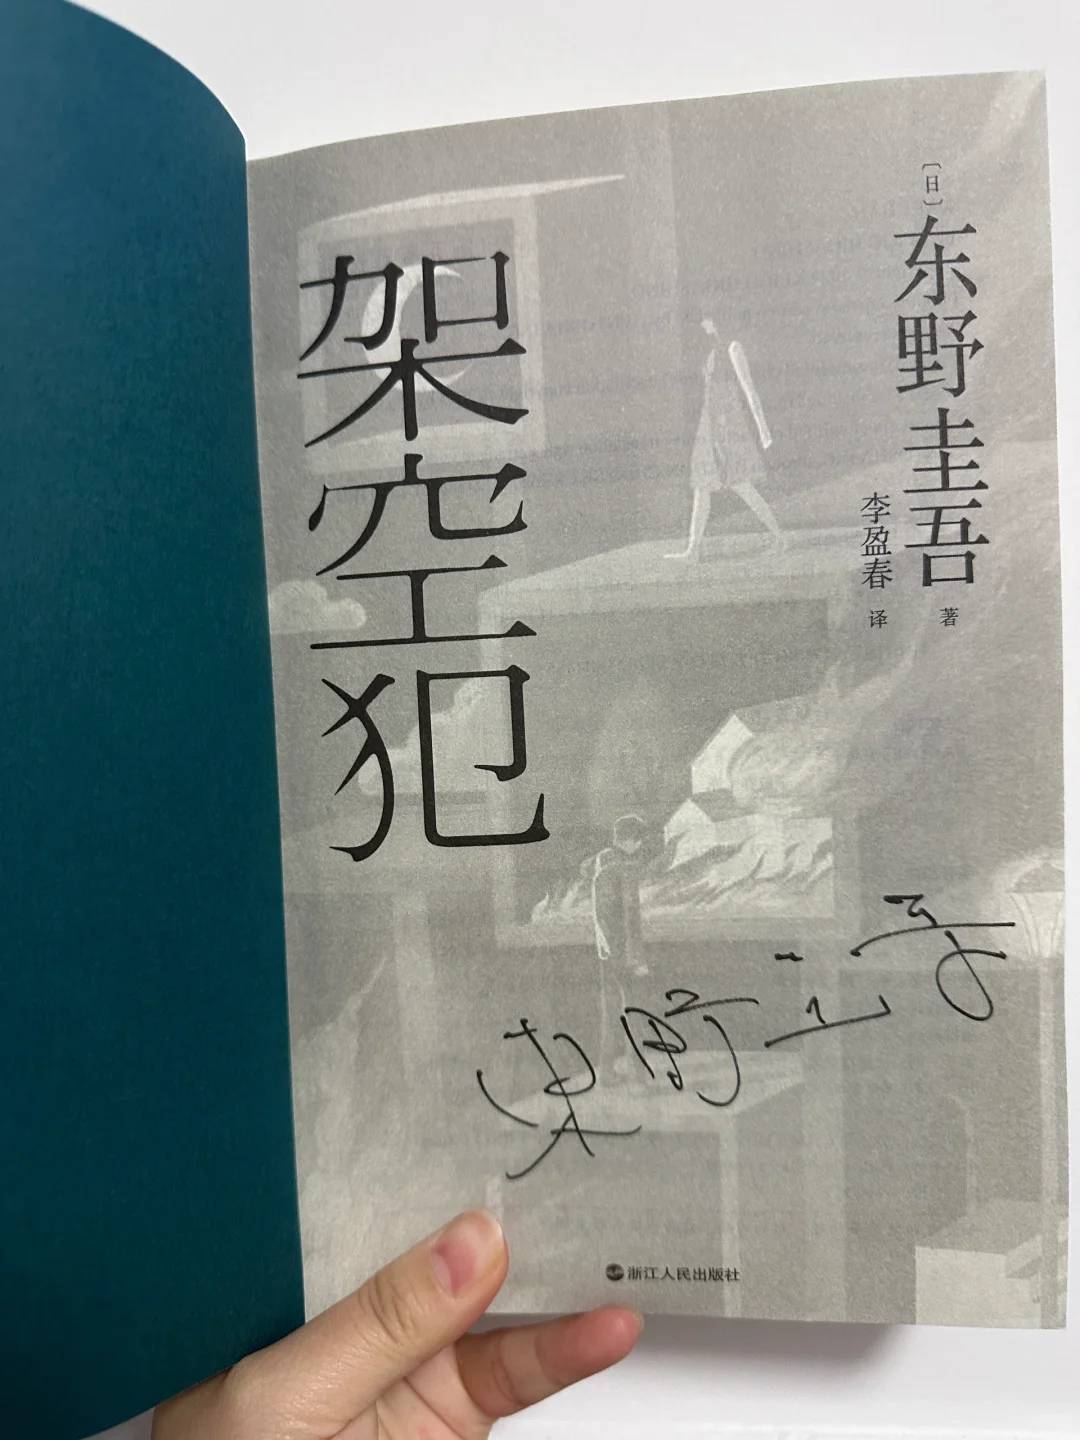 〔日〕
东野圭吾 著
李盈春 译
架空犯
東野圭吾
浙江人民出版社